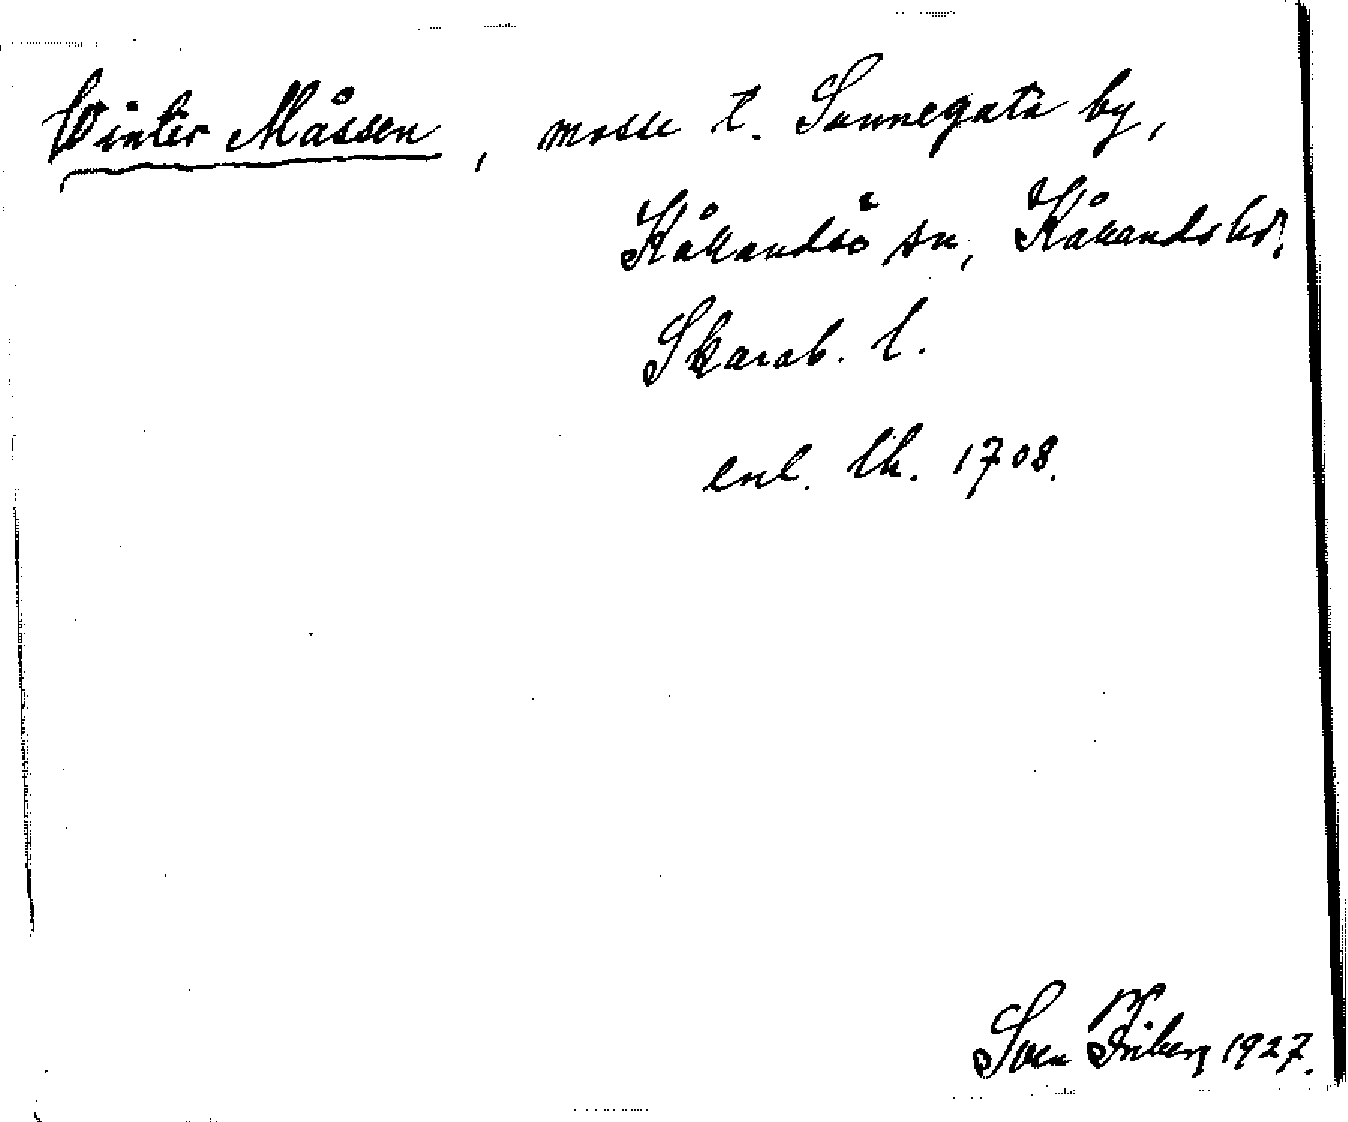 Winter Måssen, mosse t. Sunnegata by,
Kåkindsö sn, Kåkands hd.
Skarab. l.
enl. Lk. 1708.
Sven Friberg 1927.